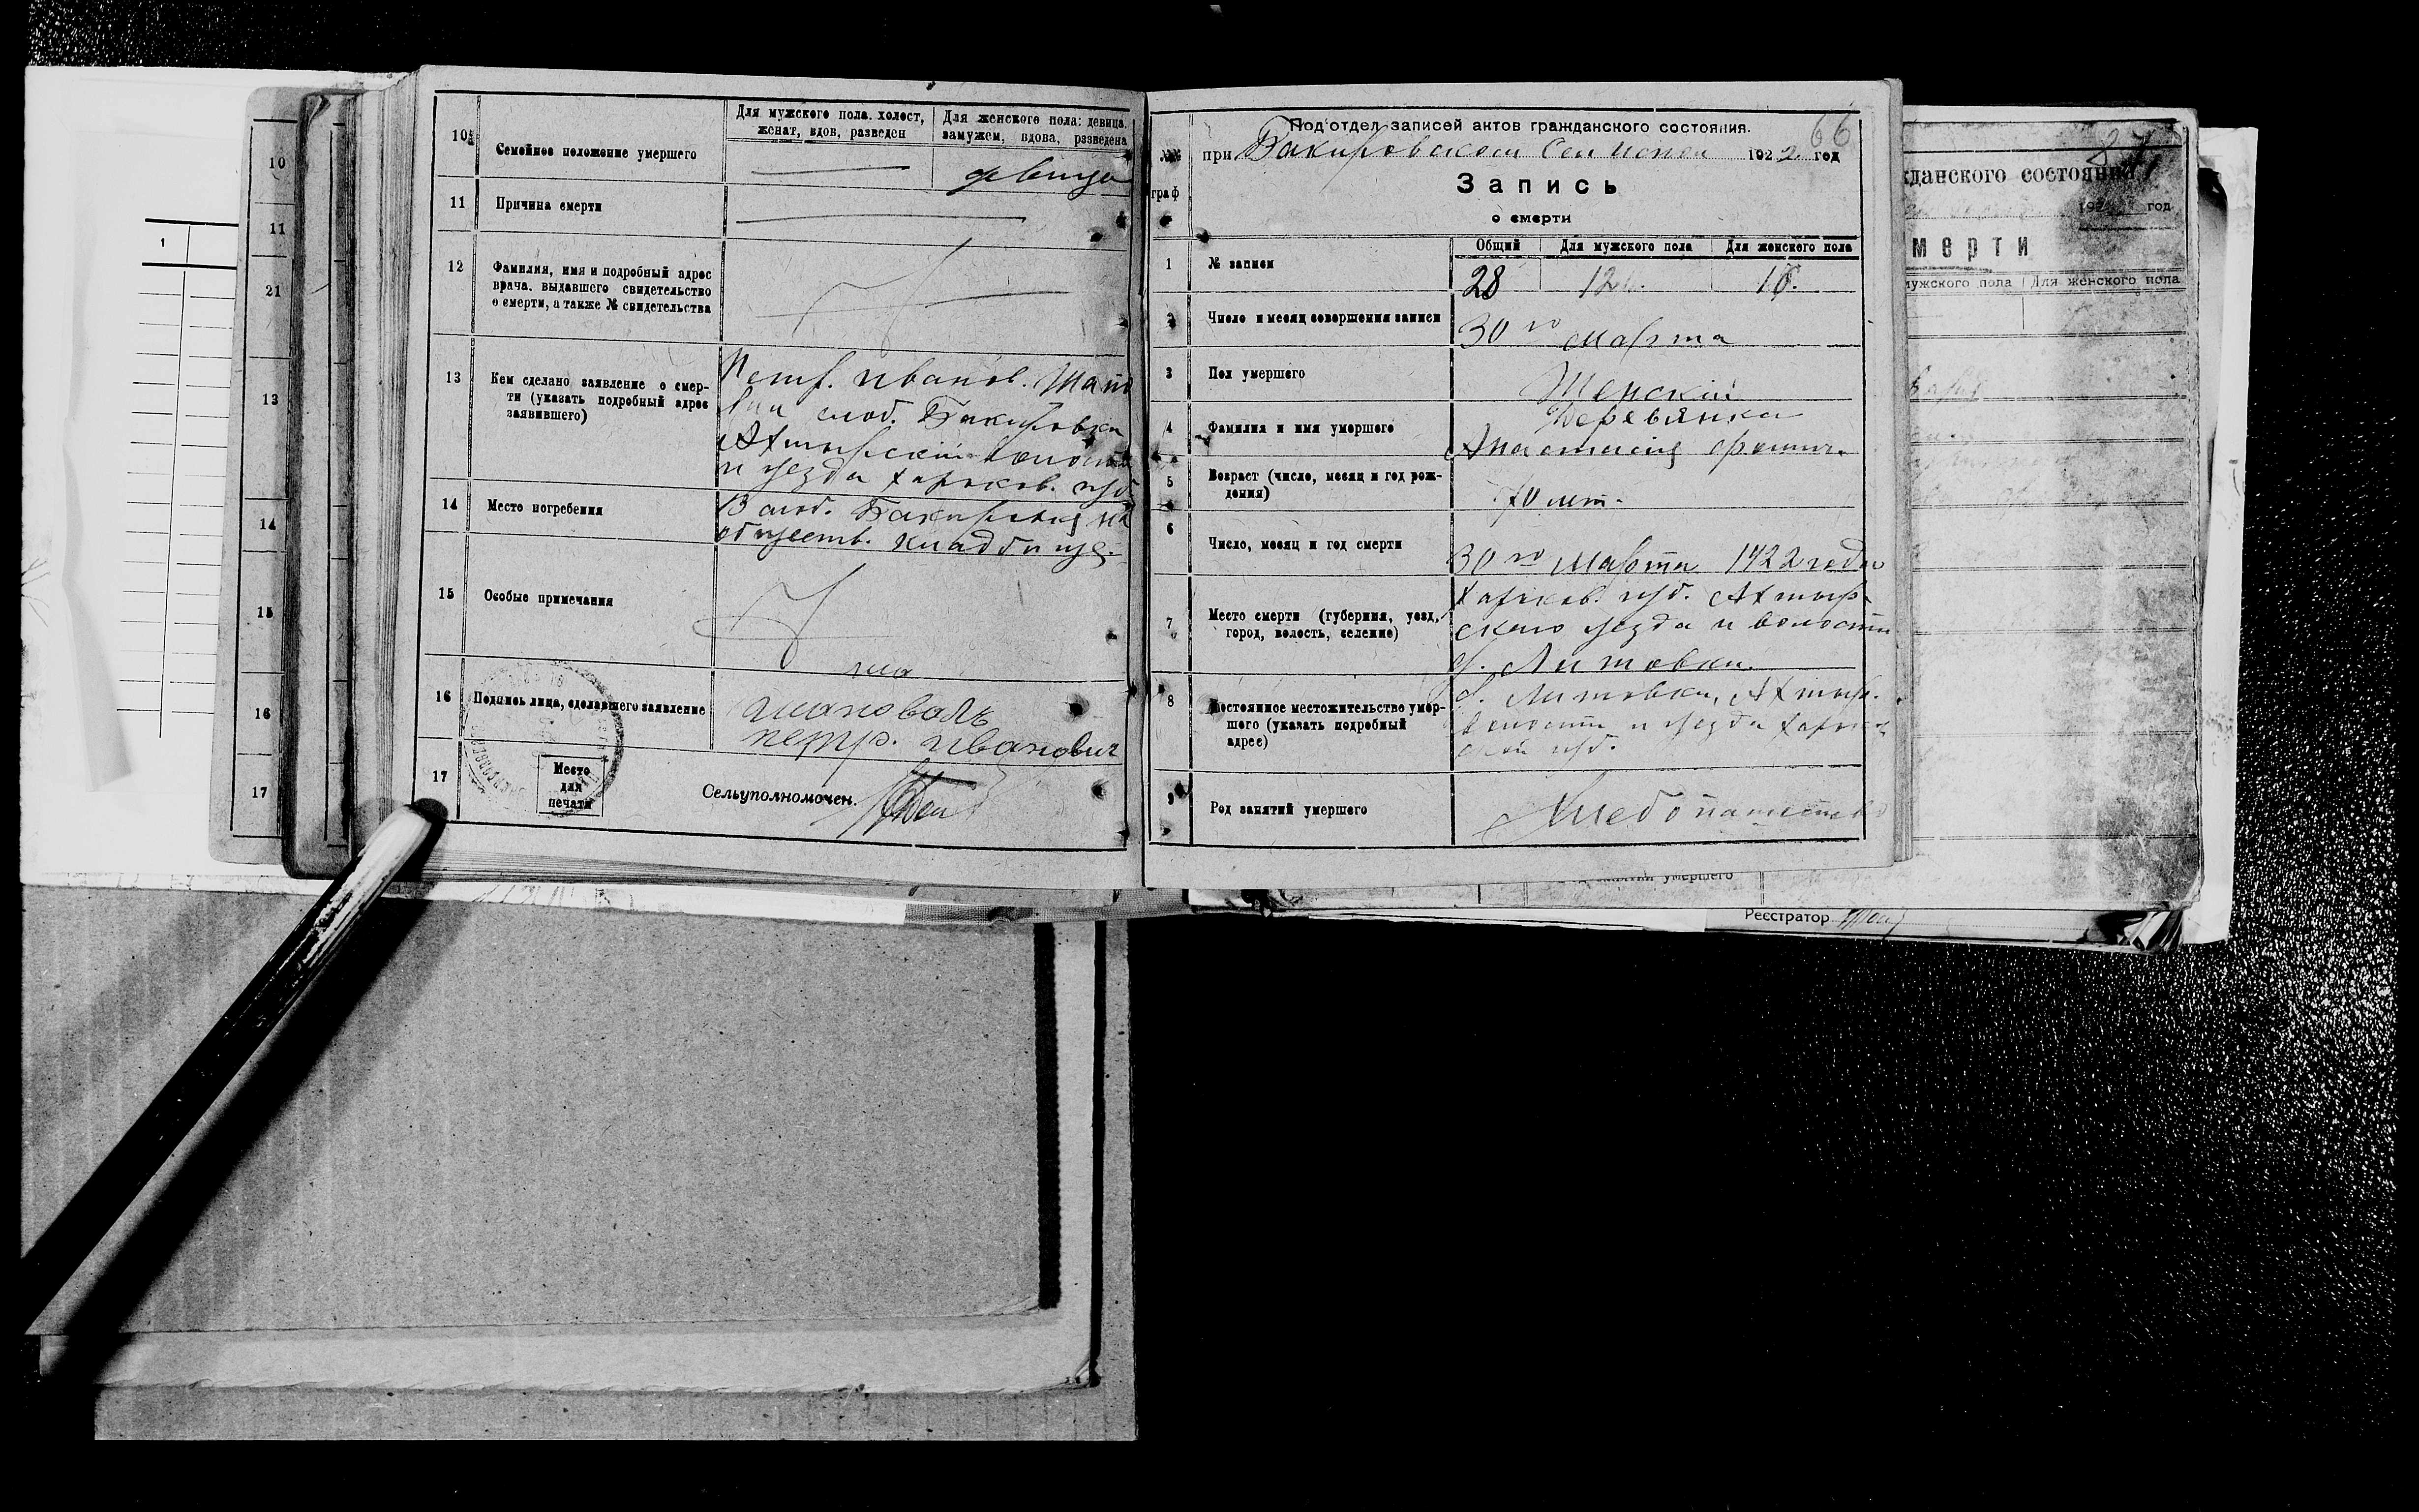 10
Семейное положение умершего
Для мужского пола. холост,
женат, вдов, разведен
Для женского пола: девица,
замужем, вдова, разведена
девица
11
Причина смерти
12
Фамилия, имя и подробный адрес
врача, выдавшего свидетельство
о смерти, а также № свидетельства
13
Кем сделано заявление о смер-
ти (указать подробный адрес
заявившего)
Петр. Иванов.
слоб. Бакировки
Ахтырской волости
и уезда Харьков. губ.
14
Место погребения
В слоб. Бакировка на
обществ. кладбище.
15
Особые примечания
16
Подпись лица, сделавшего заявление
шаповаль
петр. иванович
17
Место
для
печати
Сельуполномочен.
66
Под'отдел записей актов гражданского состояния.
№№
граф
при Бакировском Сел Испол 1922 год
Запись
о смерти
Общий
Для мужского пола
Для женского пола
1
№ записи
28
12
16.
2
Число и месяц совершения записи
30го марта
3
Пол умершего
Женский
4
Фамилия и имя умершего
Деревянка
Анастасия
5
Возраст (число, месяц и год рож-
дения)
70 лет.
6
Число, месяц и год смерти
30го Марта 1922 года
7
Место смерти (губерния, уезд,
город, волость, селение)
Харьков. губ. Ахтыр-
ского уезда и волости
д. Литовки.
8
Постоянное местожительство умер-
шего (указать подробный
адрес)
д. Литовки, Ахтыр.
волости и уезда Харьков
ской губ.
9
Род занятий умершего
Хлебопашество
10
11
21
13
14
15
16
17
1
87
жданского состояния
192 год
мерти
мужского пола
Для женского пола
умершего
Реестратор